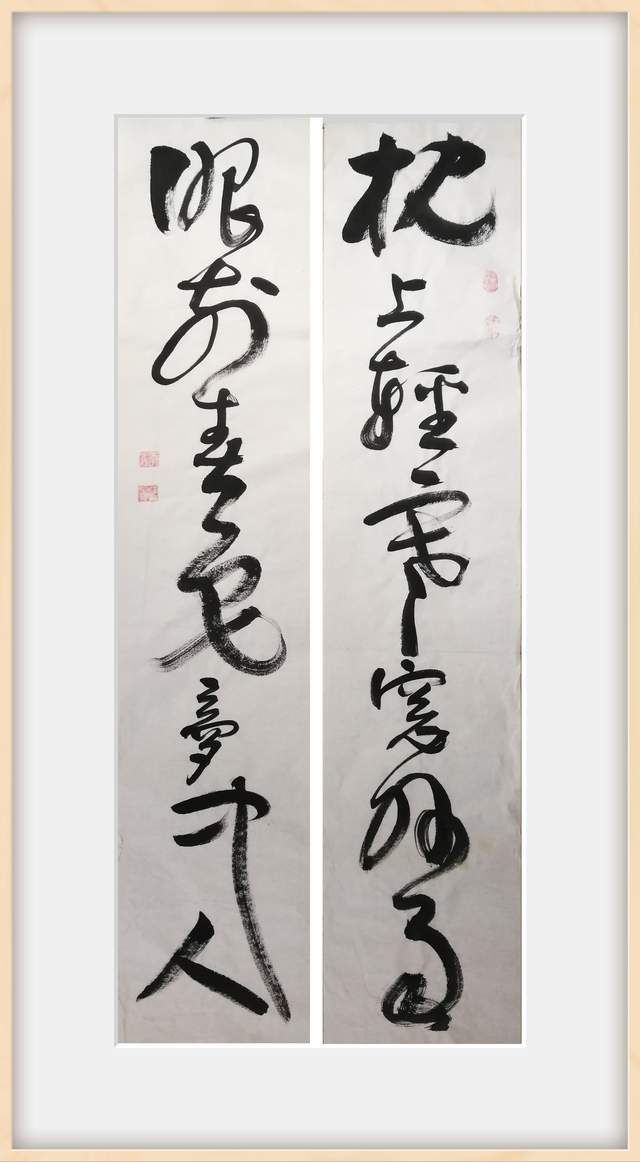 枕上輕寒窗外雨
眼前春色夢中人